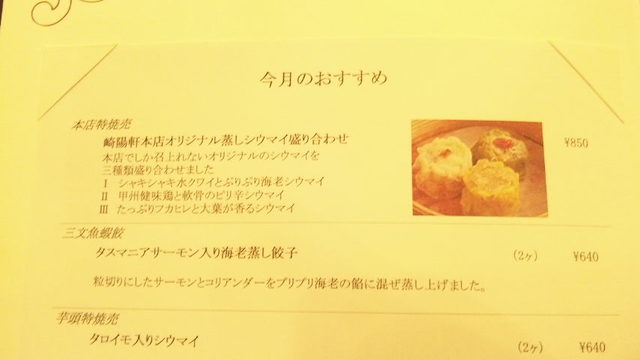 今月のおすすめ
本店特焼売
崎陽軒本店オリジナル蒸しシウマイ盛り合わせ ¥850
本店でしか召上れないオリジナルのシウマイを
三種類盛り合わせました
Ⅰ シャキシャキ水クワイとぷりぷり海老シウマイ
Ⅱ 甲州健味鶏と軟骨のピリ辛シウマイ
Ⅲ たっぷりフカヒレと大葉が香るシウマイ
三文魚蝦餃
タスマニアサーモン入り海老蒸し餃子 (2ヶ) ¥640
粒切りにしたサーモンとコリアンダーをプリプリ海老の餡に混ぜ蒸し上げました。
芋頭特焼売
タロイモ入りシウマイ (2ヶ) ¥640